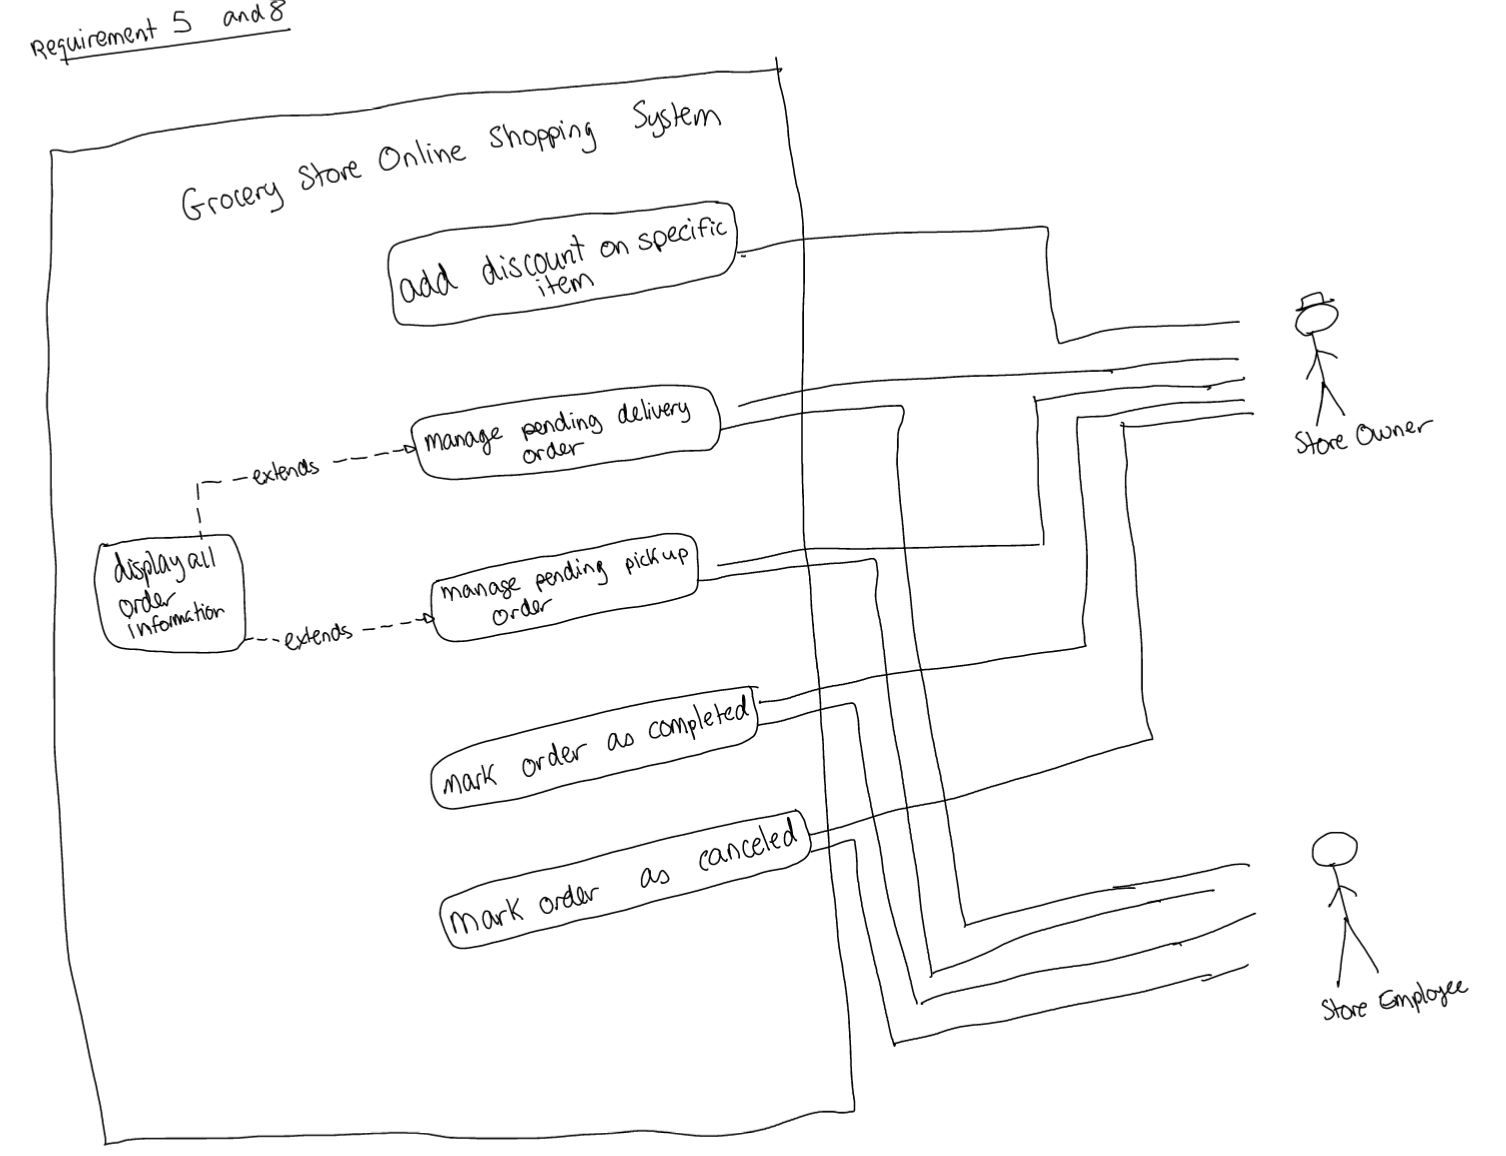 Requirement 5 and 8
Grocery Store Online Shopping System
add discount on specific
item
manage pending delivery
order
extends
display all
order
information
manage pending pick up
order
extends
mark order as completed
mark order as canceled
Store Owner
Store Employee